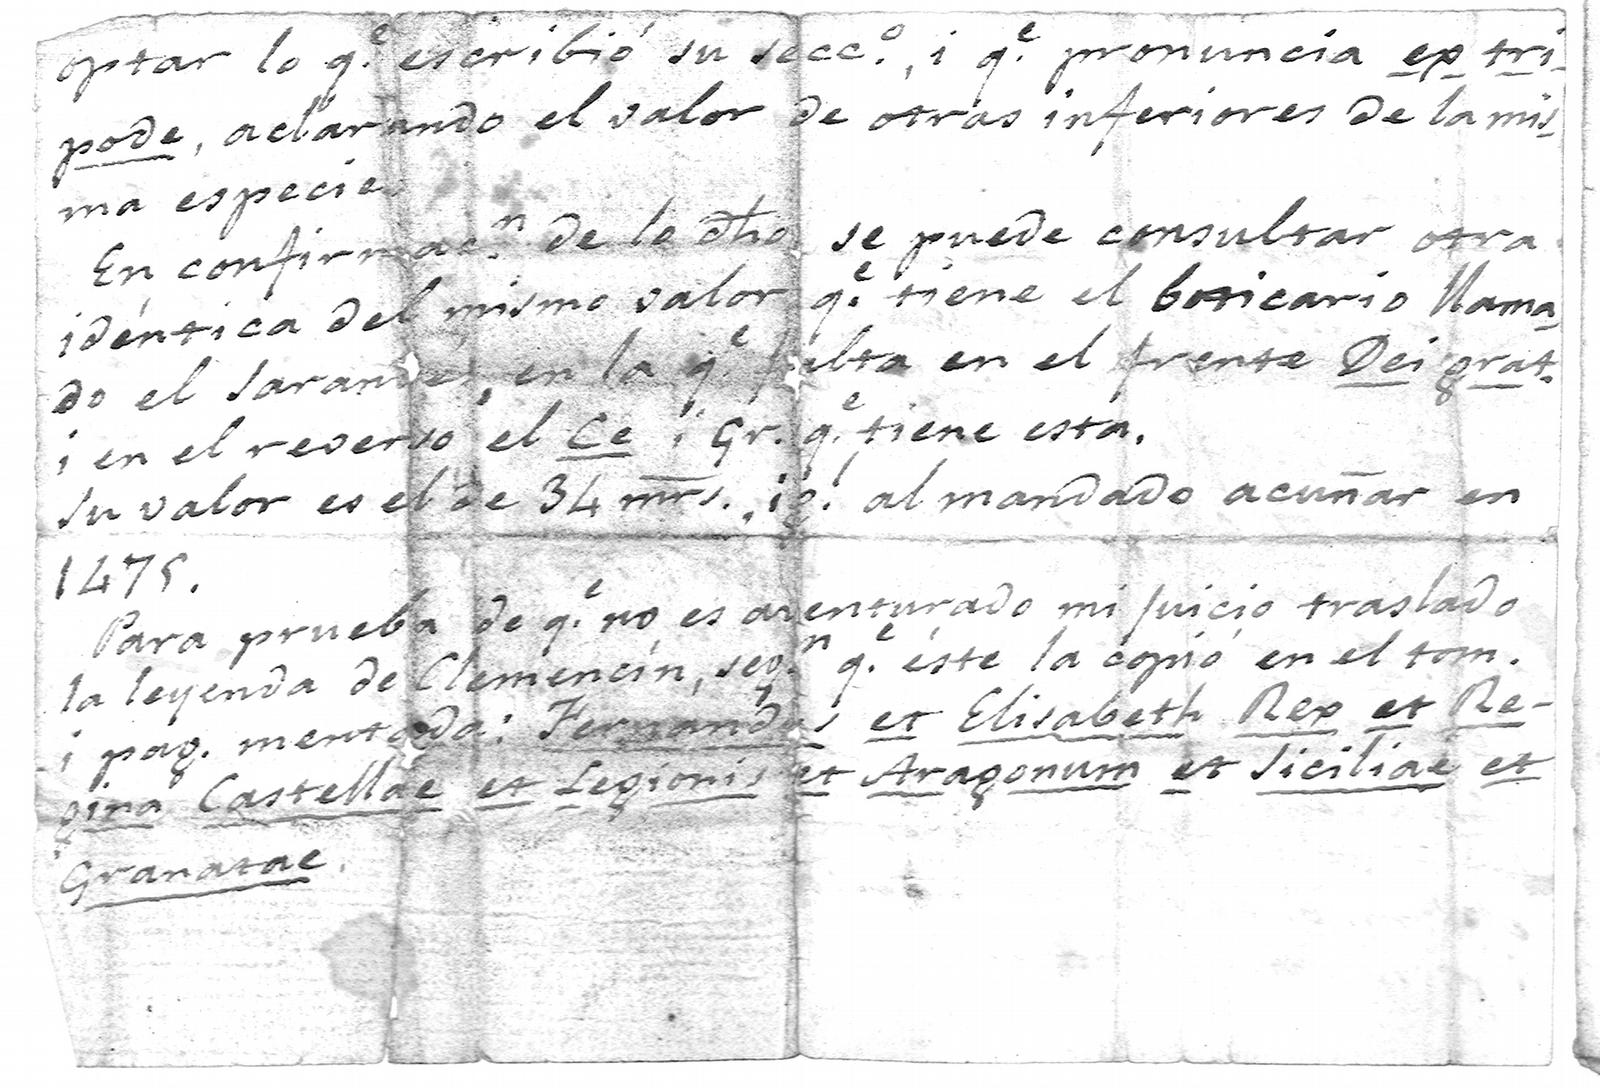 optar lo q.e escribió su secc.o, i q.e pronuncia ex tri-
pode, aclarando el valor de otras inferiores de la mis-
ma especie
En confirmac.n de lo dho se puede consultar otra
idéntica del mismo valor q.e tiene el boticario llama-
do el Sarandel, en la q.e falta en el frente Dei grat.
i en el reverso el Ce i Gr. q.e tiene esta.
Su valor es el de 34 mrs., i al mandado acuñar en
1475.
Para prueba de q.e no es aventurado mi juicio traslado
la leyenda de Clemencín, seg.n q.e éste la copió en el tom.
i pag. mentada: Fernandus et Elisabeth Rex et Re-
gina Castellae et Legionis et Aragonum et Siciliae et
Granatae.